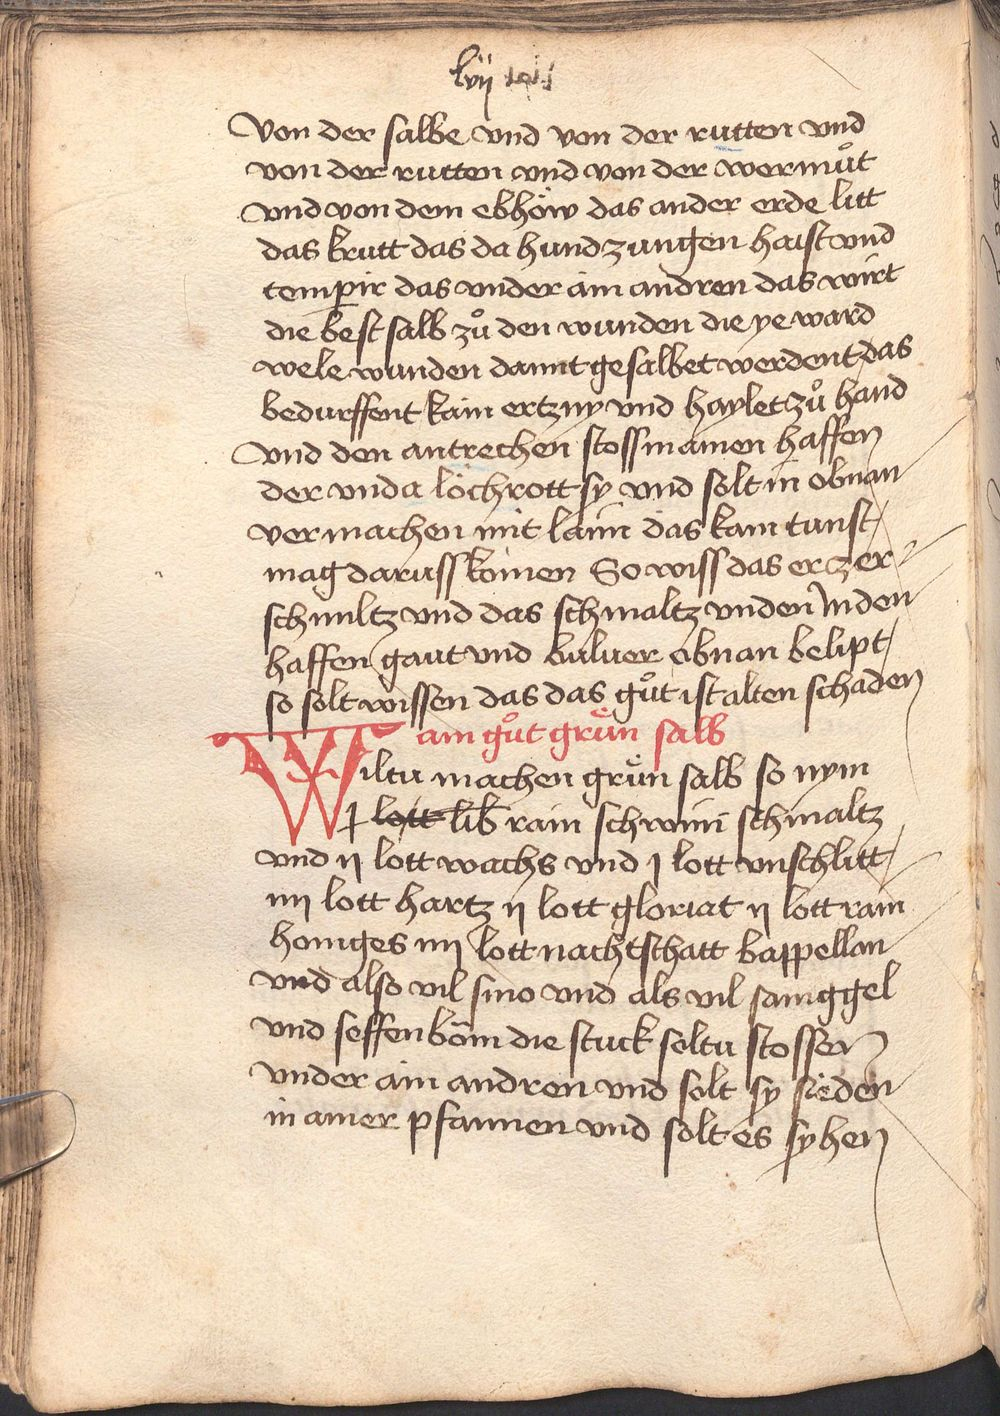 lvij
Von der salbe vnd von der rutten vnd
von der rutten vnd von der wermuͦt
vnd von dem ebhöw das ander erde litt
das krutt das da hundzungen haist vnd
tempir das vnder ain andren das wirt
die best salb zuͦ den wunden die ye ward
wele wunden damit gesalbet werdent das
bedurffent kain ertzny vnd haylet zuͦ hand
vnd den antrechen stoss in ainen haffen
der vnda löchrott sy vnd solt in obnan
vermachen mit laim das kain tunst
mag daruss komen So wiss das er zer-
schmiltz vnd das schmaltz vnden in den
haffen gaut vnd buluer obnan belipt
so solt wissen das das guͦt ist alten schaden
ain guͦt gruͤn salb
Wiltu machen gruͤn salb so nym
j lott lib rain schwini schmaltz
vnd ij lott wachs vnd j lott vnschlitt
iiij lott hartz ij lott gloriat ij lott rain
honiges iiij lott nachtschatt bappellan
vnd also vil sino vnd als vil saniggel
vnd seffenböm die stuck soltu stossen
vnder ain andren vnd solt sy sieden
in ainer pfannen vnd solt es syhen